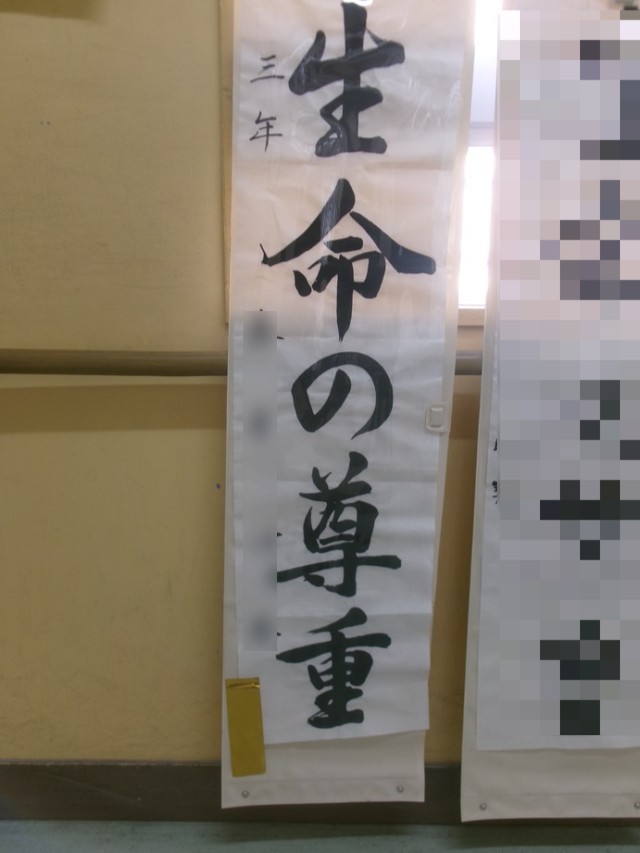 生命の尊重
三年